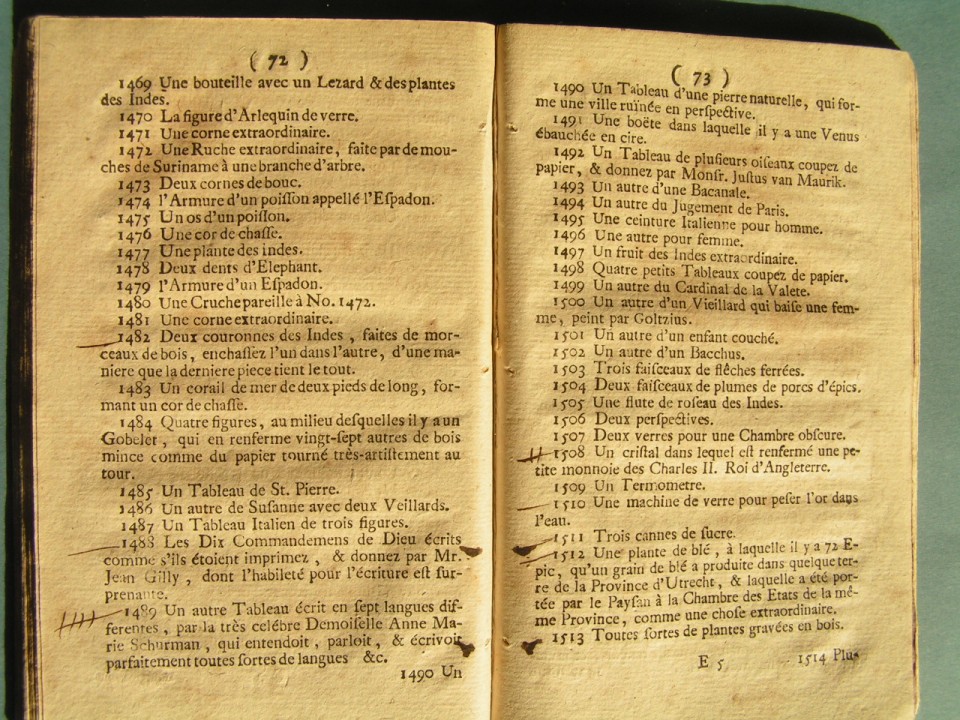 ( 72 )
1469 Une bouteille avec un Lezard & des plantes
des Indes.
1470 La figure d'Arlequin de verre.
1471 Une corne extraordinaire.
1472 Une Ruche extraordinaire, faite par de mou-
ches de Suriname à une branche d'arbre.
1473 Deux cornes de bouc.
1474 l'Armure d'un poiſſon appellé l'Eſpadon.
1475 Un os d'un poiſſon.
1476 Une cor de chaſſe.
1477 Une plante des indes.
1478 Deux dents d'Elephant.
1479 l'Armure d'un Eſpadon.
1480 Une Cruche pareille à No. 1472.
1481 Une corne extraordinaire.
1482 Deux couronnes des Indes, faites de mor-
ceaux de bois, enchaſſez l'un dans l'autre, d'une ma-
niere que la derniere piece tient le tout.
1483 Un corail de mer de deux pieds de long, for-
mant un cor de chaſſe.
1484 Quatre figures, au milieu deſquelles il y a un
Gobelet, qui en renferme vingt-ſept autres de bois
mince comme du papier tourné très-artiſtement au
tour.
1485 Un Tableau de St. Pierre.
1486 Un autre de Suſanne avec deux Veillards.
1487 Un Tableau Italien de trois figures.
1488 Les Dix Commandemens de Dieu écrits
comme s'ils étoient imprimez, & donnez par Mr.
Jean Gilly, dont l'habileté pour l'écriture eſt ſur-
prenante.
1489 Un autre Tableau écrit en ſept langues dif-
ferentes, par la très celébre Demoiſelle Anne Ma-
rie Schurman, qui entendoit, parloit, & écrivoit
parfaitement toutes ſortes de langues &c.
1490 Un
( 73 )
1490 Un Tableau d'une pierre naturelle, qui for-
me une ville ruïnée en perſpective.
1491 Une boëte dans laquelle il y a une Venus
ébauchée en cire.
1492 Un Tableau de pluſieurs oiſeaux coupez de
papier, & donnez par Monſr. Juſtus van Maurik.
1493 Un autre d'une Bacanale.
1494 Un autre du Jugement de Paris.
1495 Une ceinture Italienne pour homme.
1496 Une autre pour femme.
1497 Un fruit des Indes extraordinaire.
1498 Quatre petits Tableaux coupez de papier.
1499 Un autre du Cardinal de la Valete.
1500 Un autre d'un Vieillard qui baiſe une fem-
me, peint par Goltzius.
1501 Un autre d'un enfant couché.
1502 Un autre d'un Bacchus.
1503 Trois faiſceaux de flêches ferrées.
1504 Deux faiſceaux de plumes de porcs d'épics.
1505 Une flute de roſeau des Indes.
1506 Deux perſpectives.
1507 Deux verres pour une Chambre obſcure.
1508 Un criſtal dans lequel eſt renfermé une pe-
tite monnoie des Charles II. Roi d'Angleterre.
1509 Un Termometre.
1510 Une machine de verre pour peſer l'or dans
l'eau.
1511 Trois cannes de ſucre.
1512 Une plante de blé, à laquelle il y a 72 E-
pic, qu'un grain de blé a produite dans quelque ter-
re de la Province d'Utrecht, & laquelle a été por-
tée par le Payſan à la Chambre des Etats de la mé-
me Province, comme une choſe extraordinaire.
1513 Toutes ſortes de plantes gravées en bois.
E 5 1514 Plu-